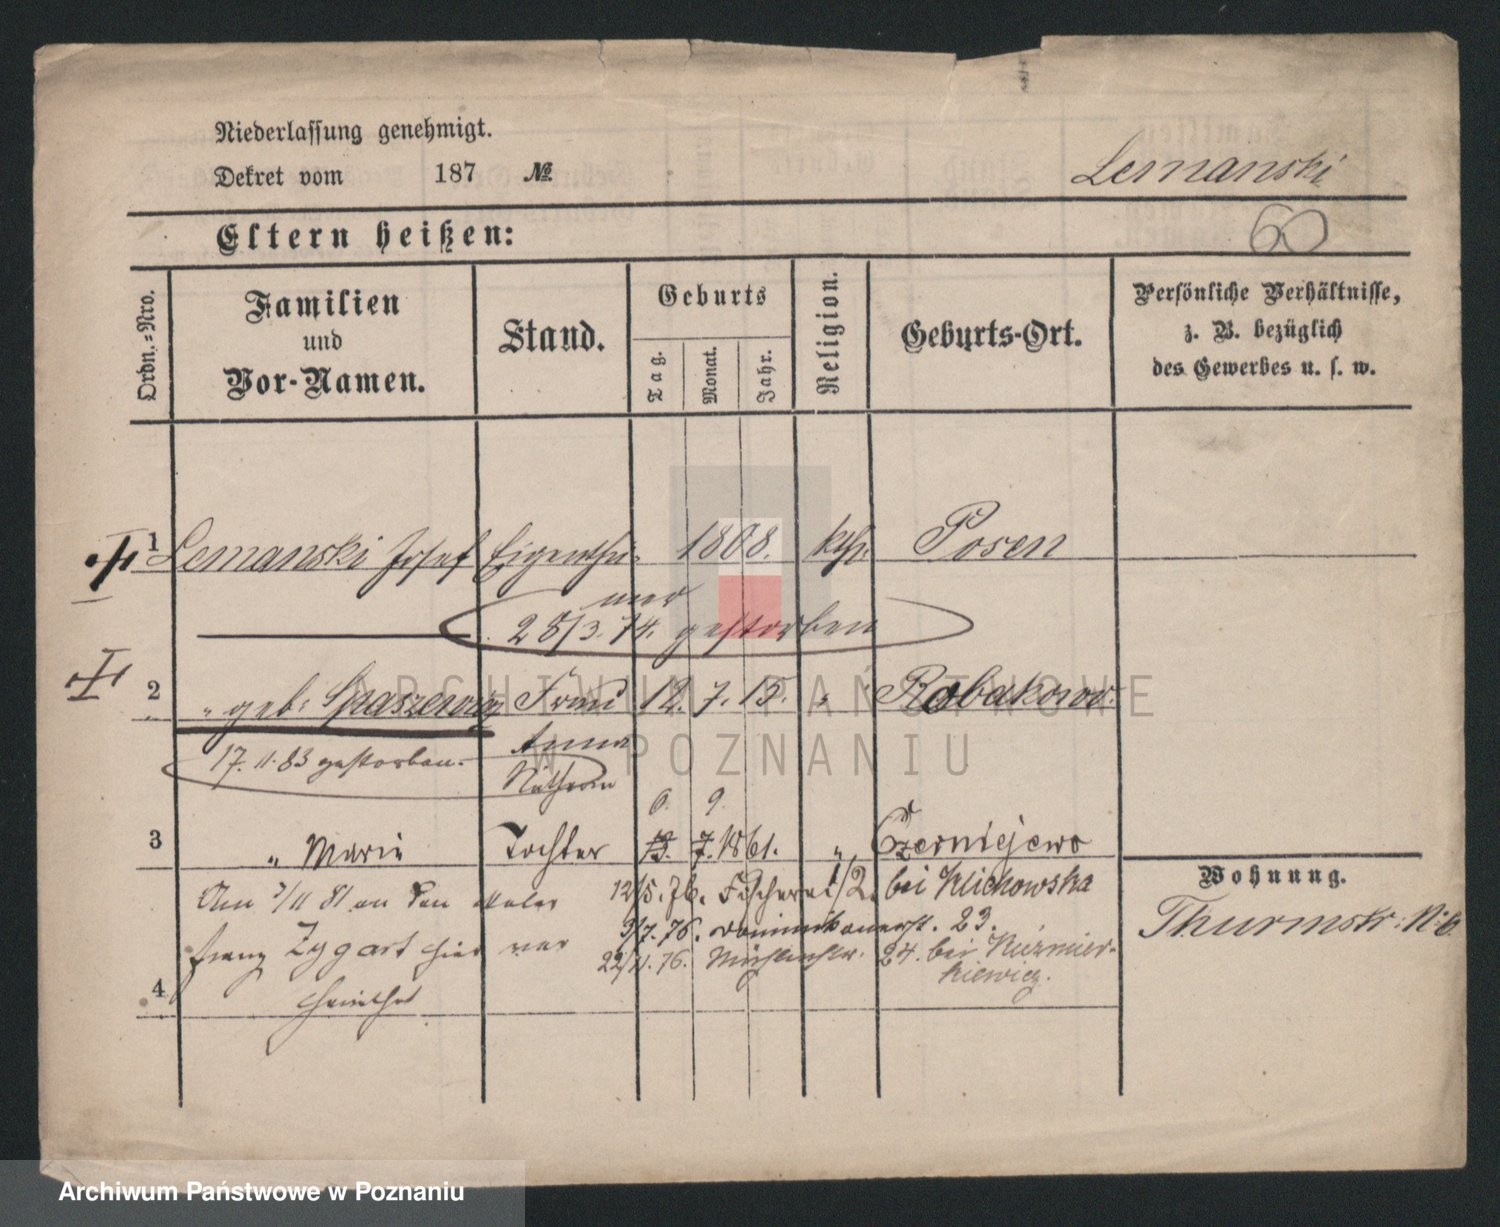 Niederlassung genehmigt.
Dekret vom 187 №
Lemanski
60
Eltern heißen:
Ordn.=Nro.
Familien
und
Vor-Namen.
Stand.
Geburts
Tag.
Monat.
Jahr.
Religion.
Geburts-Ort.
Persönliche Verhältnisse,
z. B. bezüglich
des Gewerbes u. s. w.
1 Lemanski Josef Eigenthü- 1808. kth. Posen
mer
28/3. 74. gestorben
2 " geb. Frau 12. 7. 15. " Robakowo.
Anna
17. 11. 83 gestorben.
6. 9.
3 " Marie Tochter 13. 7. 1861. " Czerniejewo
Wohnung.
Thurmstr. N. 6
Am 7/11 81 an den Maler 12/5. 76. Fischerei 1/2. bei Klichowska
Franz Zygart hier ver 3/7. 76. Dominikanerst. 23.
22/11. 76. Mühlenstr. 24. bei Kuzmier-
kiewicz.
4 heirathet
ARCHIWUM PAŃSTWOWE
W POZNANIU
Archiwum Państwowe w Poznaniu